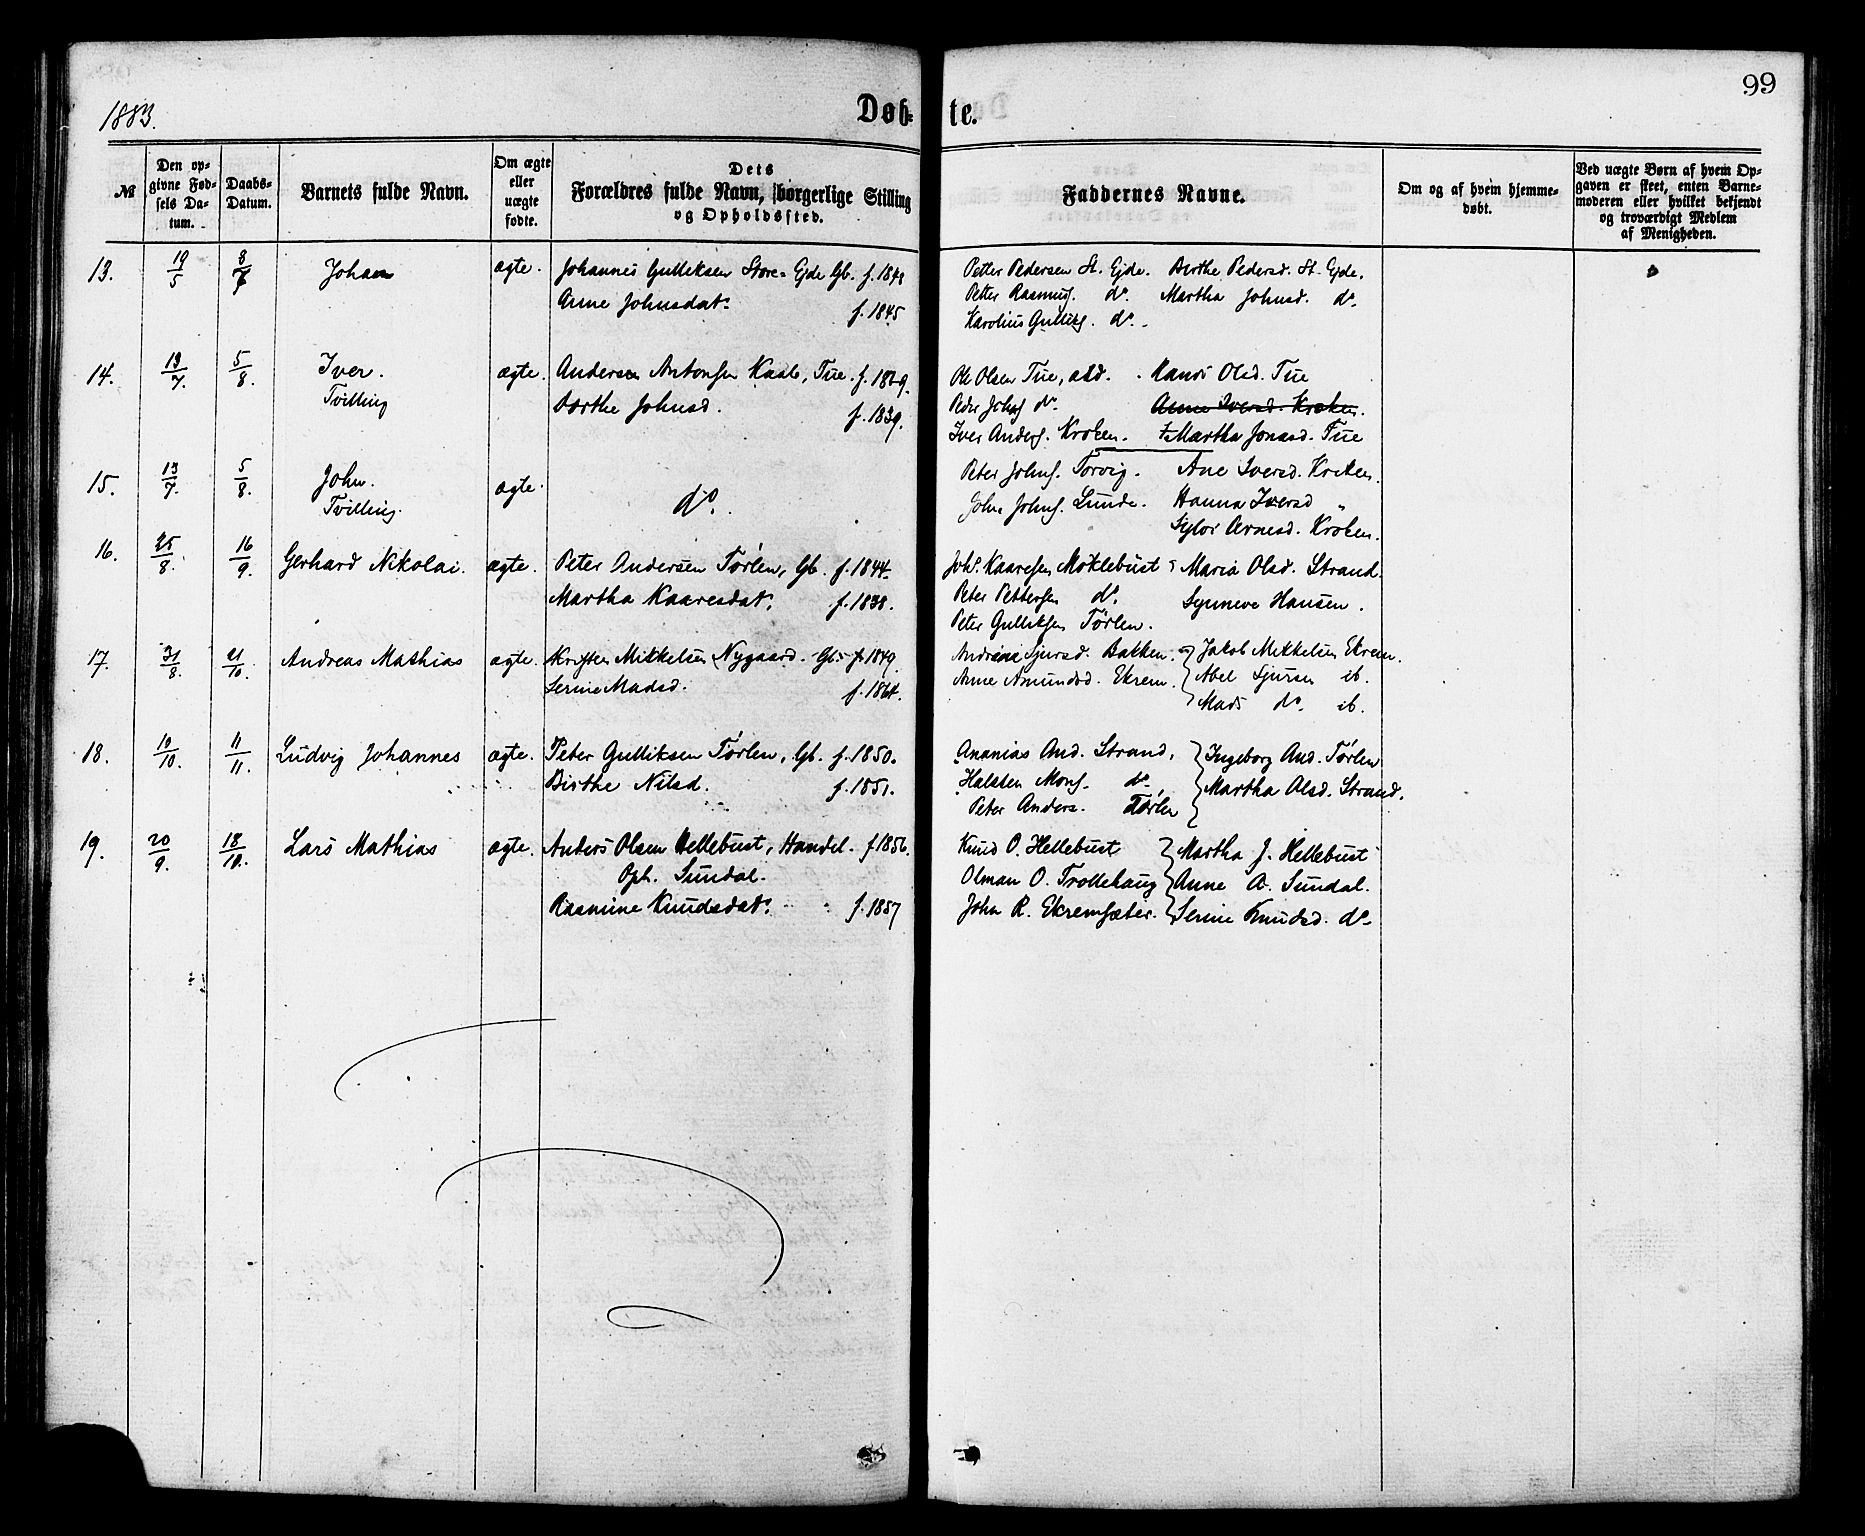 99
1883.
Døb-
te.
№
Den op-
givne Fød-
sels Da-
tum.
Daabs-
Datum.
Barnets fulde Navn.
Om ægte
eller
uægte
fødte.
Dets
Forældres fulde Navn, borgerlige Stilling
og Opholdssted.
Faddernes Navne.
Om og af hvem hjemme-
døbt.
Ved uægte Børn af hvem Op-
gaven er skeet, enten Barne-
moderen eller hvilket bekjendt
og troværdigt Medlem
af Menigheden.
13. 19/5 8/7 Johan ægte. Johannes Gulliksen Store-Ejde Gb. f. 1848
Anne Johnsdatr. f. 1845
Petter Pedersen St. Ejde. Berthe Pedersd. St. Ejde.
Petter Rasmus. do. Martha Johnsd. do.
Karolius Gulliks. do.
14. 19/7. 5/8. Iver. ægte. Andersen Antonsen Tue. f. 1829.
Tvilling
Dorthe Johnsd. f. 1839.
Ole Olsen Tue, Mands Olsd. Tue
Peder Johns do. Anne Iversd. Kroken.
Iver Anders. Kroken. Martha Jonasd. Tue
15. 19/7. 5/8. John. ægte. do.
Tvilling.
Peter Johns. Torvig. Ane Iversd. Kroken.
John Johns. Lunde. Hanna Iversd "
Sylvi Arnesd. Kroken.
16. 25/8. 16/9. Gerhard Nikolai. ægte. Peter Andersen Tørlen, Gb. f. 1844.
Martha Kaaresdatr. f. 1838.
Johs. Kaaresen Møklebust Maria Olsd. Strand.
Peter Pettersen do. Synneve Hansen.
Peter Gulliksen Tørlen.
17. 31/8. 21/10. Andreas Mathias ægte. Kristen Mikkelsen Nygaard. Gb. f. 1849.
Serine Madsd. f. 1864.
Andrine Sjursd. Bakken. Jakob Mikkelsen Ekrem.
Anne Amundsd. Ekrem. Abel Sjursen ib.
Mads do. ib.
18. 19/10. 11/11. Ludvig Johannes ægte. Peter Gulliksen Tørlen, Gb. f. 1850.
Birthe Nilsd. f. 1851.
Ananias And. Strand, Ingeborg And. Tørlen
Halsten Mons. do. Martha Olsd. Strand.
Peter Anders. Tørlen
19. 20/9. 18/10. Lars Mathias ægte. Anders Olsen Hellebust, Handel. f 1856.
Oph. Sundal.
Rasmine Knudsdatr. f. 1857
Knud O. Hellebust Martha J. Hellebust
Olman O. Trollehaug Anne A. Sundal.
John R. Ekremsæter. Serine Knudsd. do.